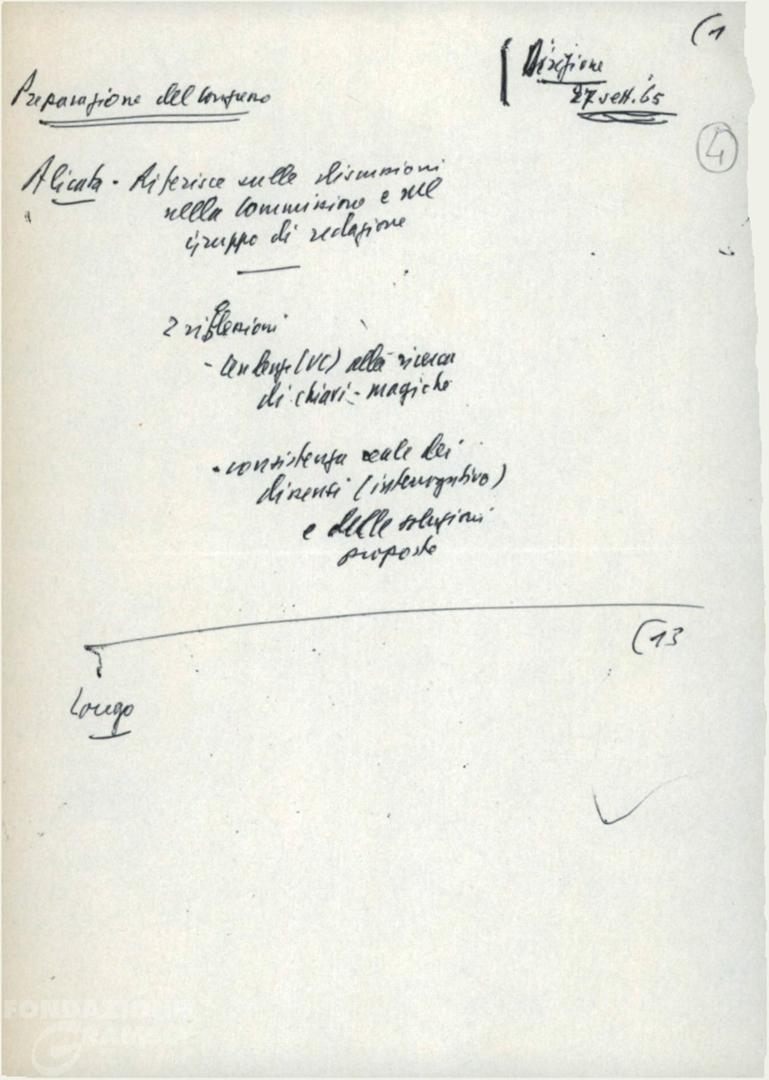 (1
Direzione
27 sett. 65
Preparazione del Congresso
4
Alicata - Riferisce sulle discussioni
nella Commissione e nel
gruppo di redazione
2 riflessioni
- tendenze (VC) alla ricerca
di chiavi - magiche
- consistenza reale dei
dissensi (interrogativo)
e delle soluzioni
proposte
(13
Longo
FONDAZIONE
GRAMSCI